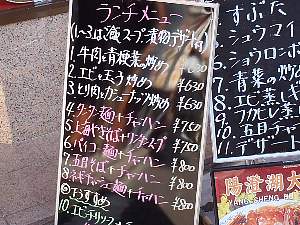 ランチメニュー
(1~3は飯スープ漬物デザート付)
1. 牛肉と青梗菜の炒め ¥630
2. エビと玉子炒め ¥630
3. とり肉とカシューナッツ炒め ¥630
4. タンタン麺+チャーハン ¥750
5. 上海やきそば+ワンタンスープ ¥750
6. パイコー麺+チャーハン ¥800
7. 五目そば+チャーハン ¥800
8. ネギチャーシュー麺+チャーハン ¥800
◎おすすめ
10. エビチリソース
すぶた
5. シュウマイ
6. ショウロンポウ
7. 青菜の炒め
8. エビ蒸し
9. フカヒレ
10. 五目チャーハン
11. デザート
大澄湖陽
YANGCHENG